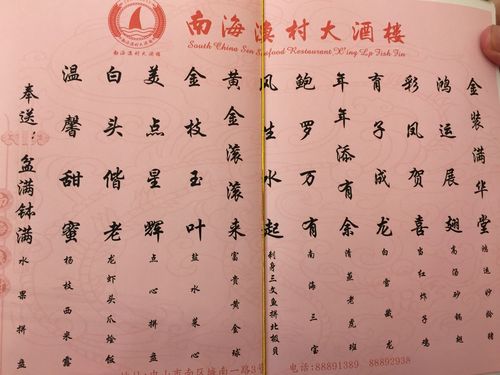 南海渔村大酒楼
南海渔村大酒楼
South China Sea Seafood Restaurant X'ing Lp Fish Fin
金满华堂
鸿运妙龄猪
鸿运展翅
高汤砂锅翅
彩凤贺喜
当红炸子鸡
育子成龙
白雪藏龙
年年添有余
清蒸老虎班
鲍罗万有
南海三宝
风生水起
刺身三文鱼拼北极贝
黄金滚滚来
富贵黄金球
金枝玉叶
盐水菜心
美点星辉
点心拼盘
白头偕老
龙虾头爪烩饭
温馨甜蜜
杨枝西米露
奉送：盆满钵满
水果拼盘
地址:中山市南区城南一路3号
电话:88891389 88892938